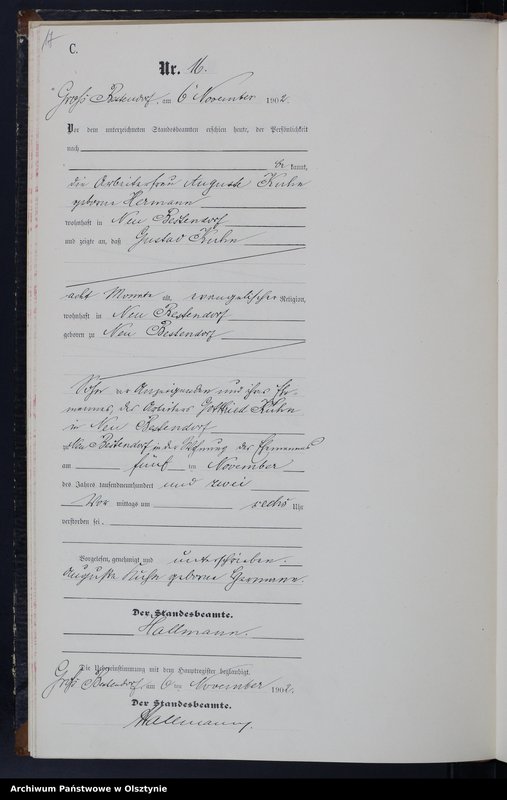 C.
Nr. 16.
Groß Bestendorf, am 6 ten November 1902.
Vor dem unterzeichneten Standesbeamten erschien heute, der Persönlichkeit
nach
be kannt,
die Arbeiterfrau Auguste Kuhn
geborne Hermann
wohnhaft in Neu Bestendorf
und zeigte an, daß Gustav Kuhn
acht Monate alt, evangelischer Religion,
wohnhaft in Neu Bestendorf
geboren zu Neu Bestendorf
Sohn der Anzeigenden und ihres Ehe-
mannes, des Arbeiters Gottfried Kuhn
in Neu Bestendorf
zu Neu Bestendorf in der Wohnung des Ehemannes
am fünf ten November
des Jahres tausendneunhundert und zwei
Vor mittags um sechs Uhr
verstorben sei.
Vorgelesen, genehmigt und unterschrieben.
Auguste Kuhn geborne Hermann.
Der Standesbeamte.
Hallmann.
Die Uebereinstimmung mit dem Hauptregister beglaubigt.
Groß Bestendorf, am 6 ten November 1902.
Der Standesbeamte.
Hallmann.
Archiwum Państwowe w Olsztynie